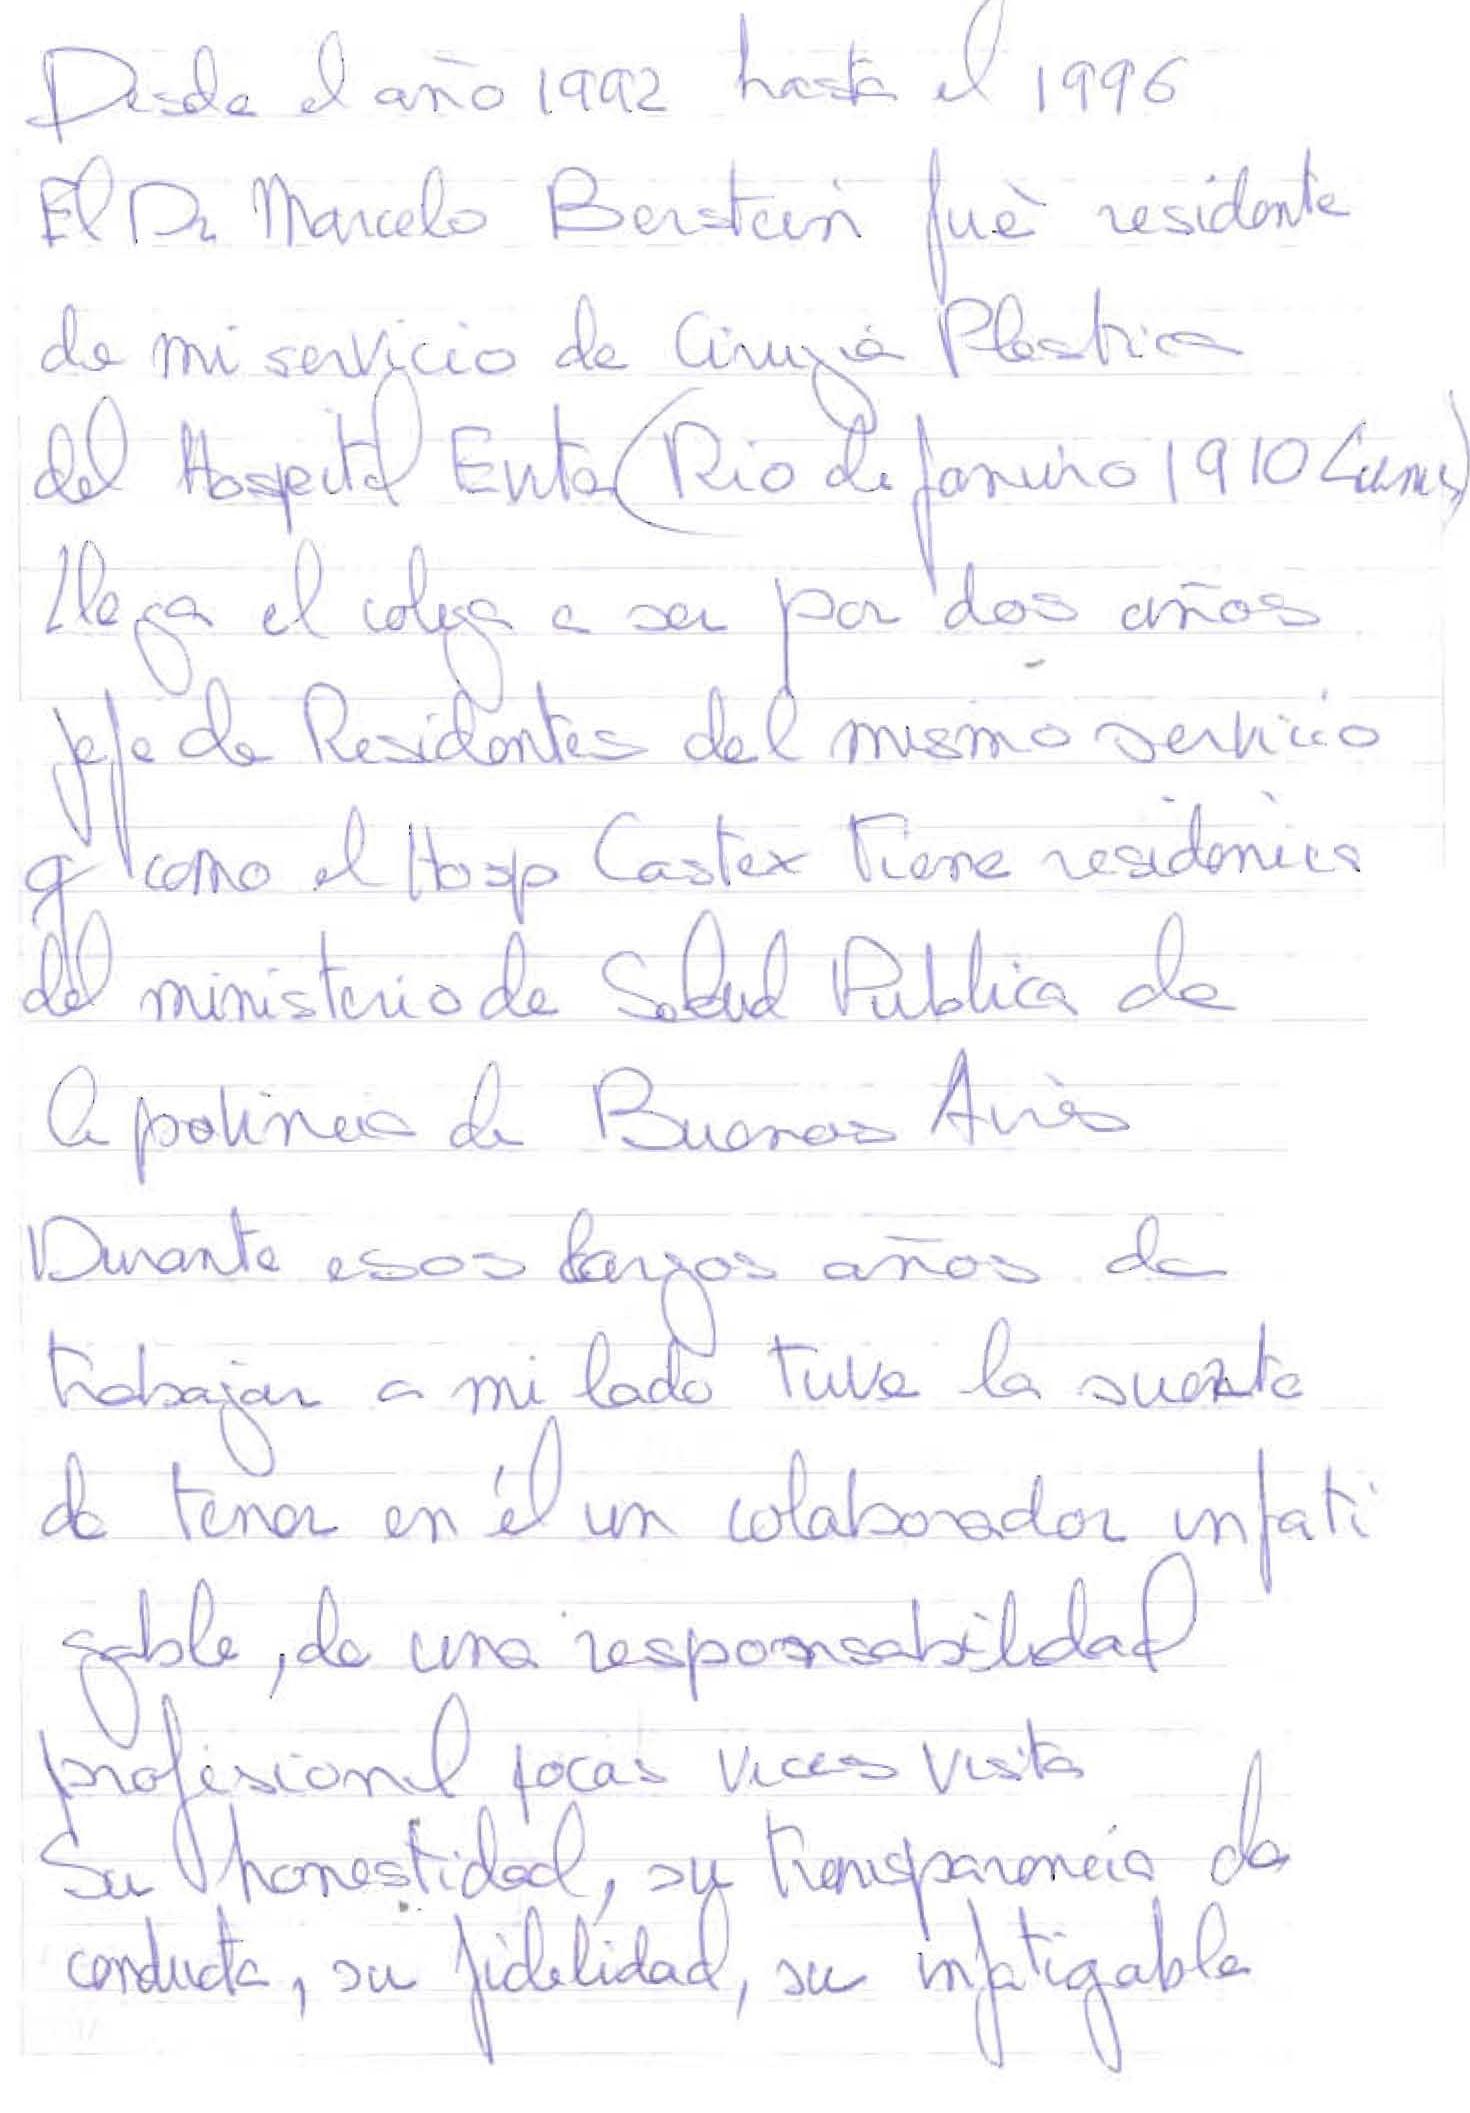 Desde el año 1992 hasta el 1996
El Dr Marcelo Berstein fuè residente
de mi servicio de Cirugia Plastica
del Hospital Evita (Rio de Janeiro 1910 Lanus)
Llega el colega a ser por dos años
jefe de Residentes del mismo servicio
q como el Hosp Castex tiene residencia
del ministerio de Salud Publica de
la provincia de Buenos Aires
Durante esos largos años de
trabajar a mi lado tuve la suerte
de tener en él un colaborador infati
gable, de una responsabilidad
profesional pocas veces vista
Su honestidad, su transparencia de
conducta, su fidelidad, su infatigable